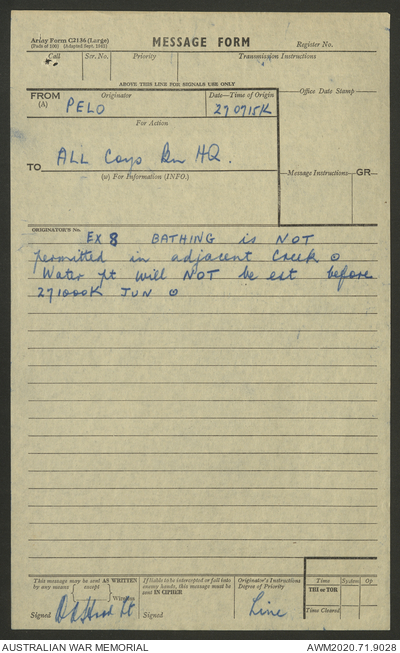 Army Form C2136 (Large)
(Pads of 100) (Adapted Sept. 1945)
MESSAGE FORM
Register No.
Call
Ser. No.
Priority
Transmission Instructions
ABOVE THIS LINE FOR SIGNALS USE ONLY
FROM
(A)
Originator
PELO
Date—Time of Origin
270715K
Office Date Stamp
For Action
TO
ALL Coys Bn HQ.
(w) For Information (INFO.)
Message Instructions
GR
ORIGINATOR'S No.
EX 8 BATHING is NOT
permitted in adjacent Creek o
Water pt will NOT be est before
271000K JUN o
This message may be sent AS WRITTEN
by any means { except }
Wireless
Signed
If liable to be intercepted or fall into
enemy hands, this message must be
sent IN CIPHER
Signed
Originator's Instructions
Degree of Priority
Line
Time
System
Op
THI or TOR
Time Cleared
AUSTRALIAN WAR MEMORIAL
AWM2020.71.9028